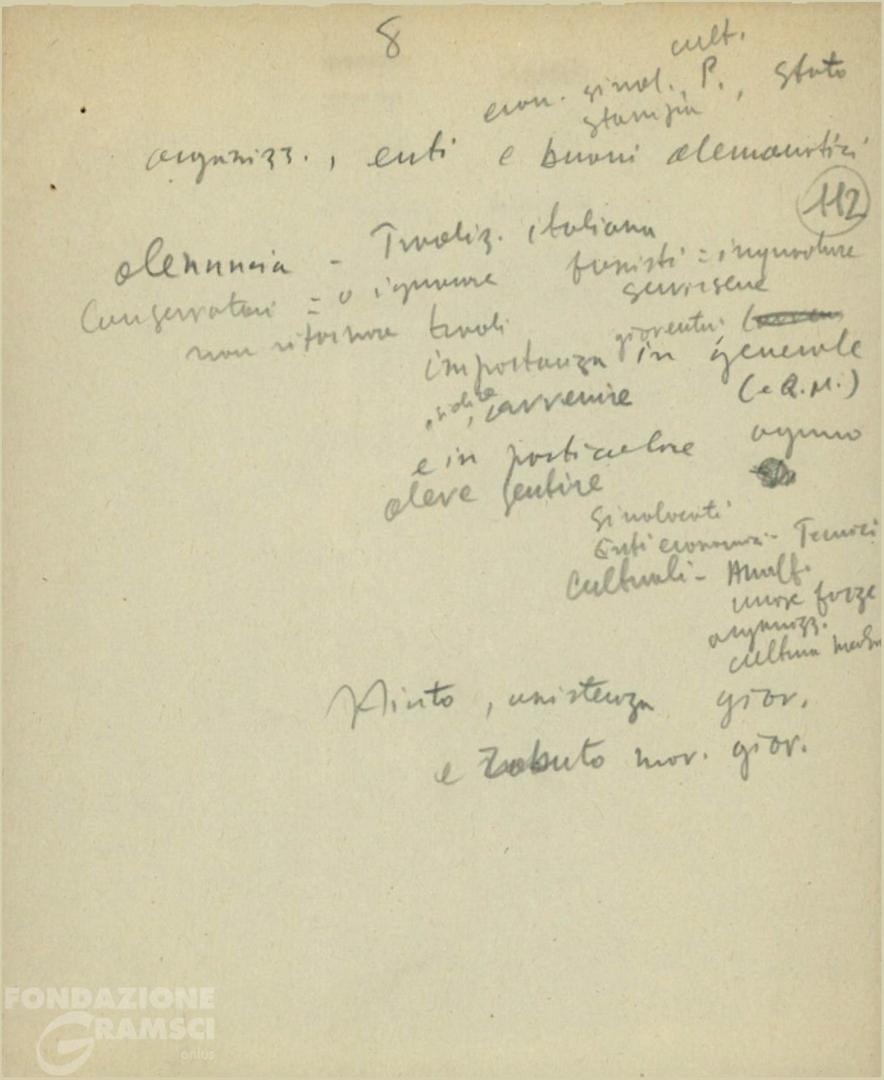 8
cult.
econ. sind., P., Stato
stampa
organizz., enti e buoni democratici
112
denuncia - Tradiz. italiana
Conservatori = o ignorare fascisti = inquadrare
non riformare servirsene
giovanili
importanza gioventù in generale
avvenire (e R.M.)
e in particolare ognuno
deve sentire
Sindacati
Enti economici - Tecnici
Culturali - Analf.
forze
organizz.
cultura
Aiuto, assistenza giov.
e mov. giov.
FONDAZIONE
GRAMSCI
onlus